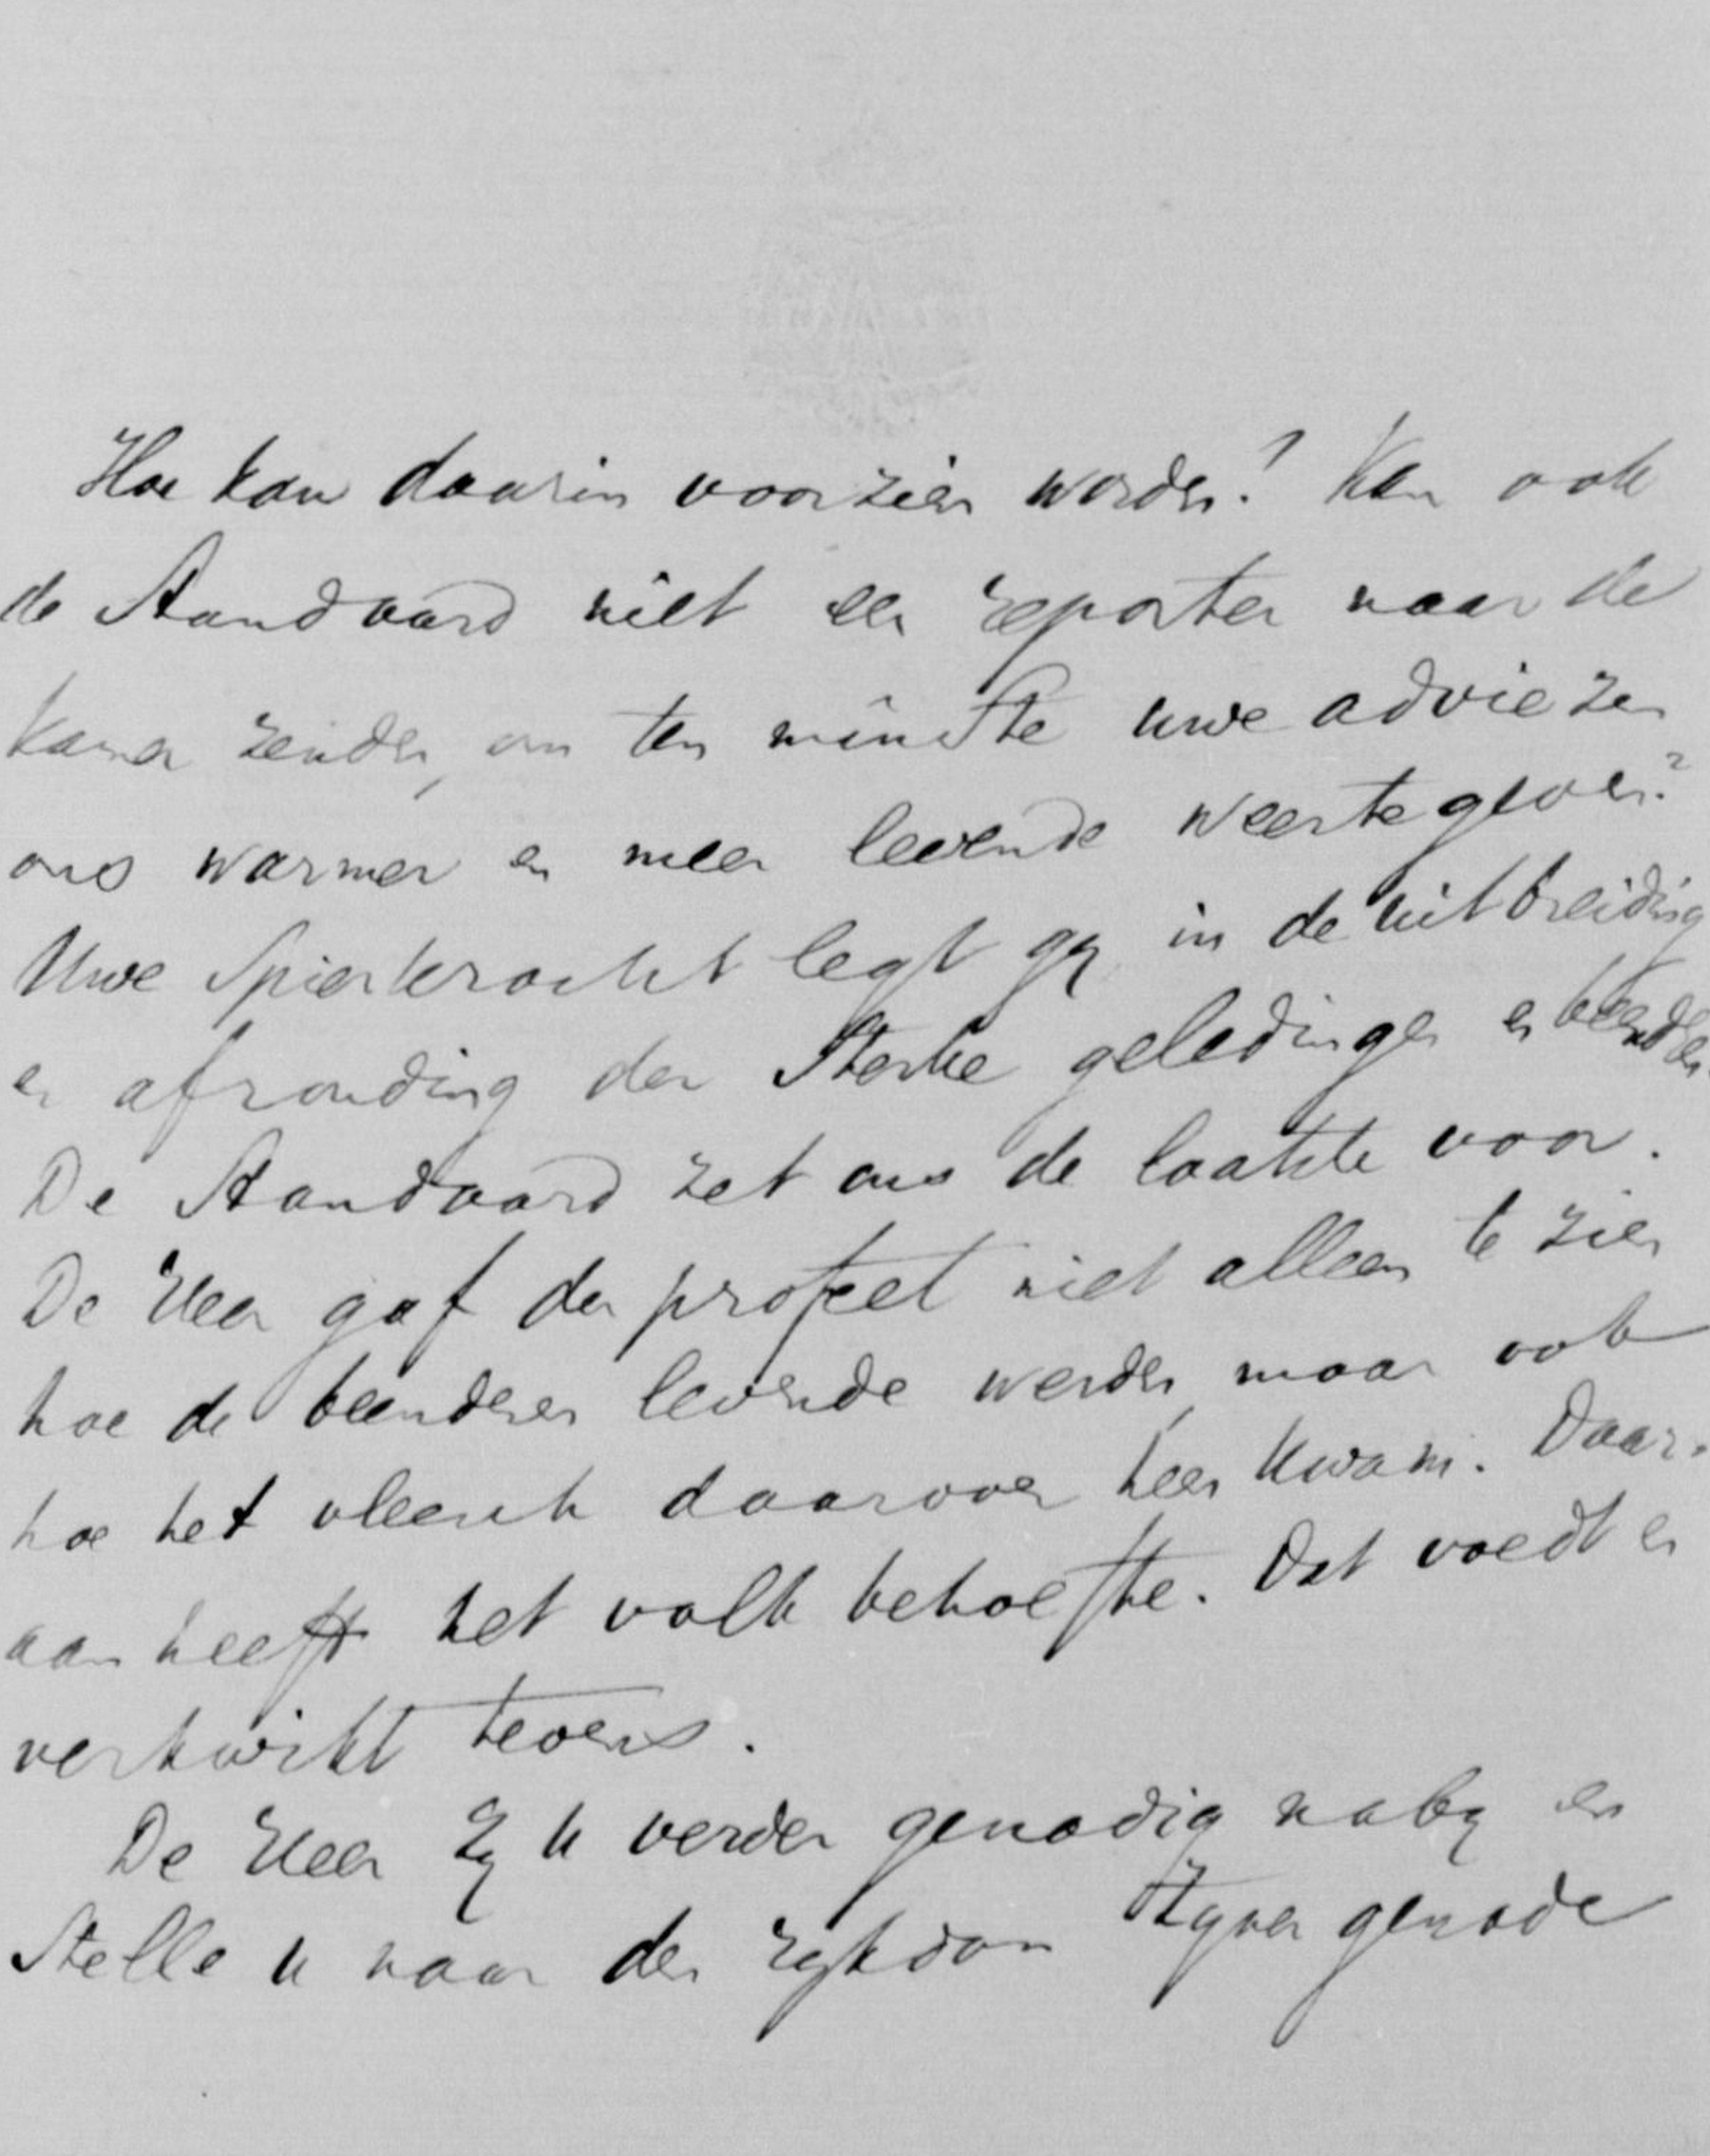 Hoe kan daarin voorzien worden? Kan ook
de Standaard niet een reporter naar de
kamer zenden, om ten minste uwe adviezen
ons warmer en meer levende weertegeven?
Uwe Spierkracht legt gij in de uitbreiding
en afronding der Sterke geledingen en beenderen.
De Standaard zet ons de laatste voor.
De Heer gaf den profeet niet alleen te zien
hoe de beenderen levende werden, maar ook
hoe het vleesch daarover heen kwam. Daar-
aan heeft het volk behoefte. Dat voedt en
verkwikt tevens.
De Heer zij u verder genadig nabij en
Stelle u naar den rijkdom Zijner genade